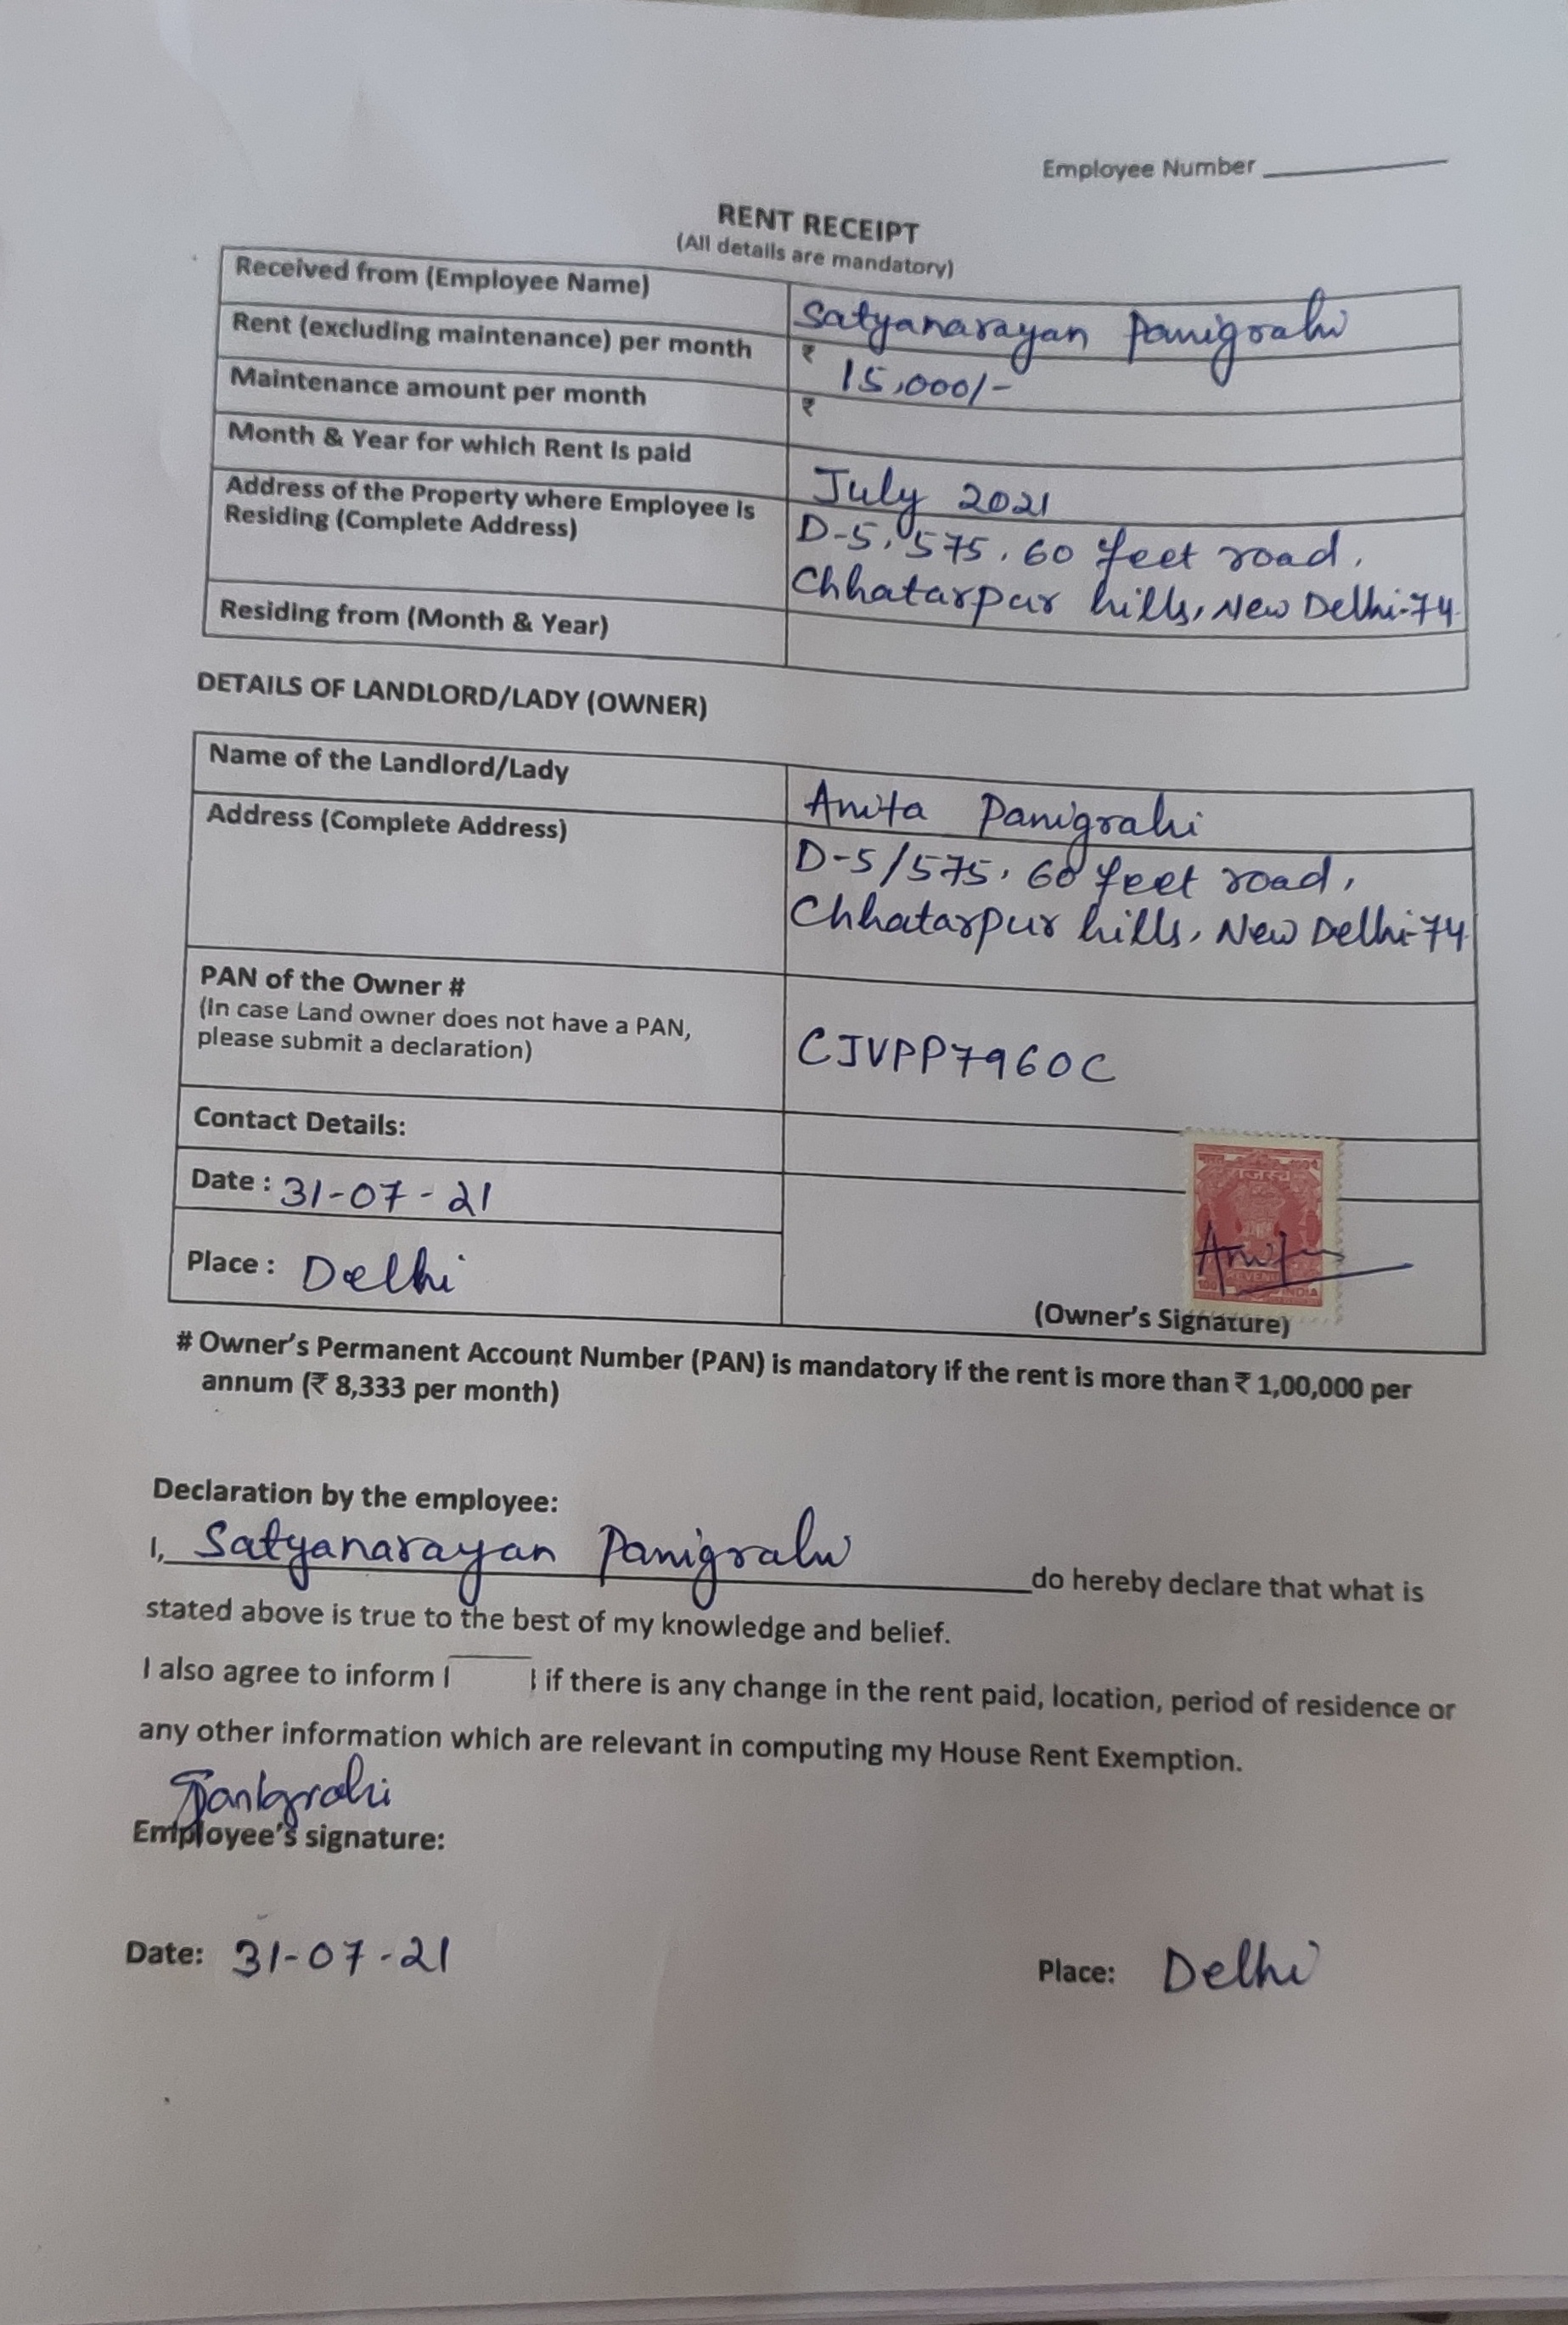 Employee Number
RENT RECEIPT
(All details are mandatory)
Received from (Employee Name) Satyanarayan Panigrahi
Rent (excluding maintenance) per month ₹ 15,000/-
Maintenance amount per month ₹
Month & Year for which Rent is paid July 2021
Address of the Property where Employee is
Residing (Complete Address)
D-5, 575, 60 feet road,
Chhatarpur hills, New Delhi-74
Residing from (Month & Year)
DETAILS OF LANDLORD/LADY (OWNER)
Name of the Landlord/Lady Anita Panigrahi
Address (Complete Address) D-5/575, 60 feet road,
Chhatarpur hills, New Delhi-74
PAN of the Owner #
(In case Land owner does not have a PAN,
please submit a declaration)
CJVPP7960C
Contact Details:
Date : 31-07-21
Place : Delhi
राजस्व
INDIA
(Owner's Signature)
# Owner's Permanent Account Number (PAN) is mandatory if the rent is more than ₹ 1,00,000 per
annum (₹ 8,333 per month)
Declaration by the employee:
I, Satyanarayan Panigrahi do hereby declare that what is
stated above is true to the best of my knowledge and belief.
I also agree to inform if there is any change in the rent paid, location, period of residence or
any other information which are relevant in computing my House Rent Exemption.
Employee's signature:
Date: 31-07-21
Place: Delhi